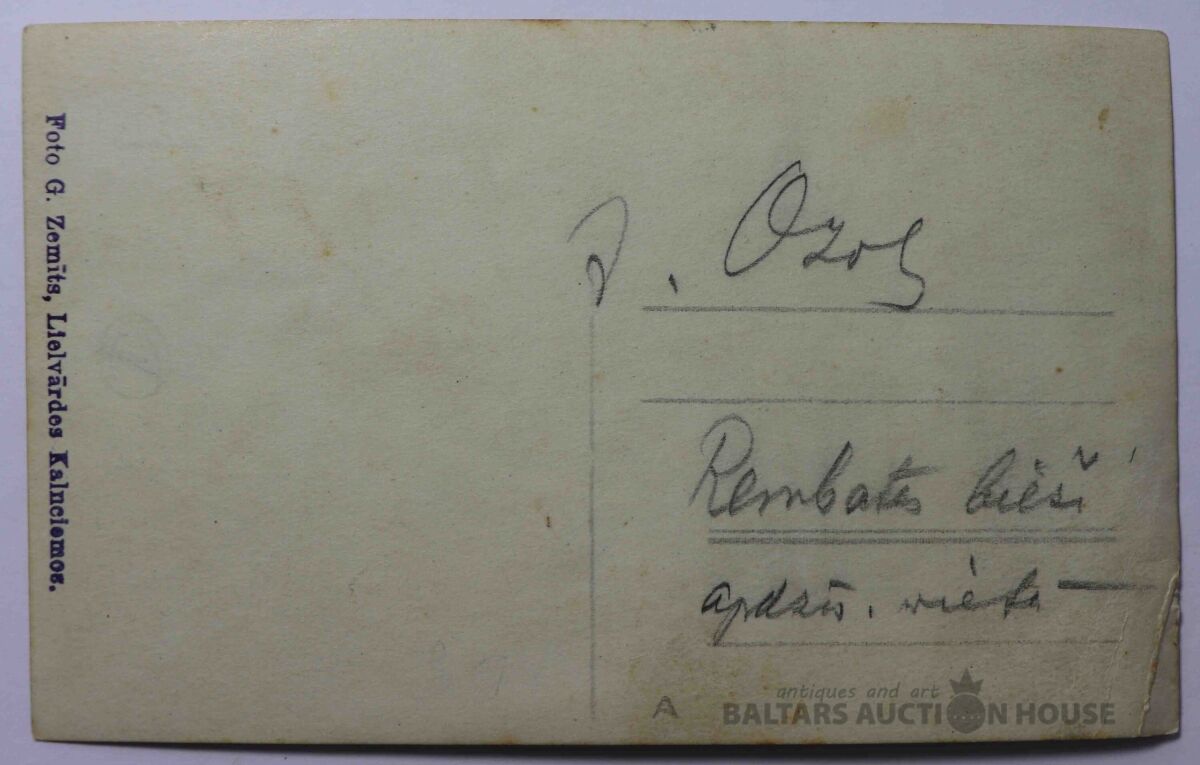 Foto G. Zemīts, Lielvārdes Kalnciemos.
. Ozol
Rembates bieši
apdzīv. wieta —
A
antiques and art
BALTARS AUCTION HOUSE